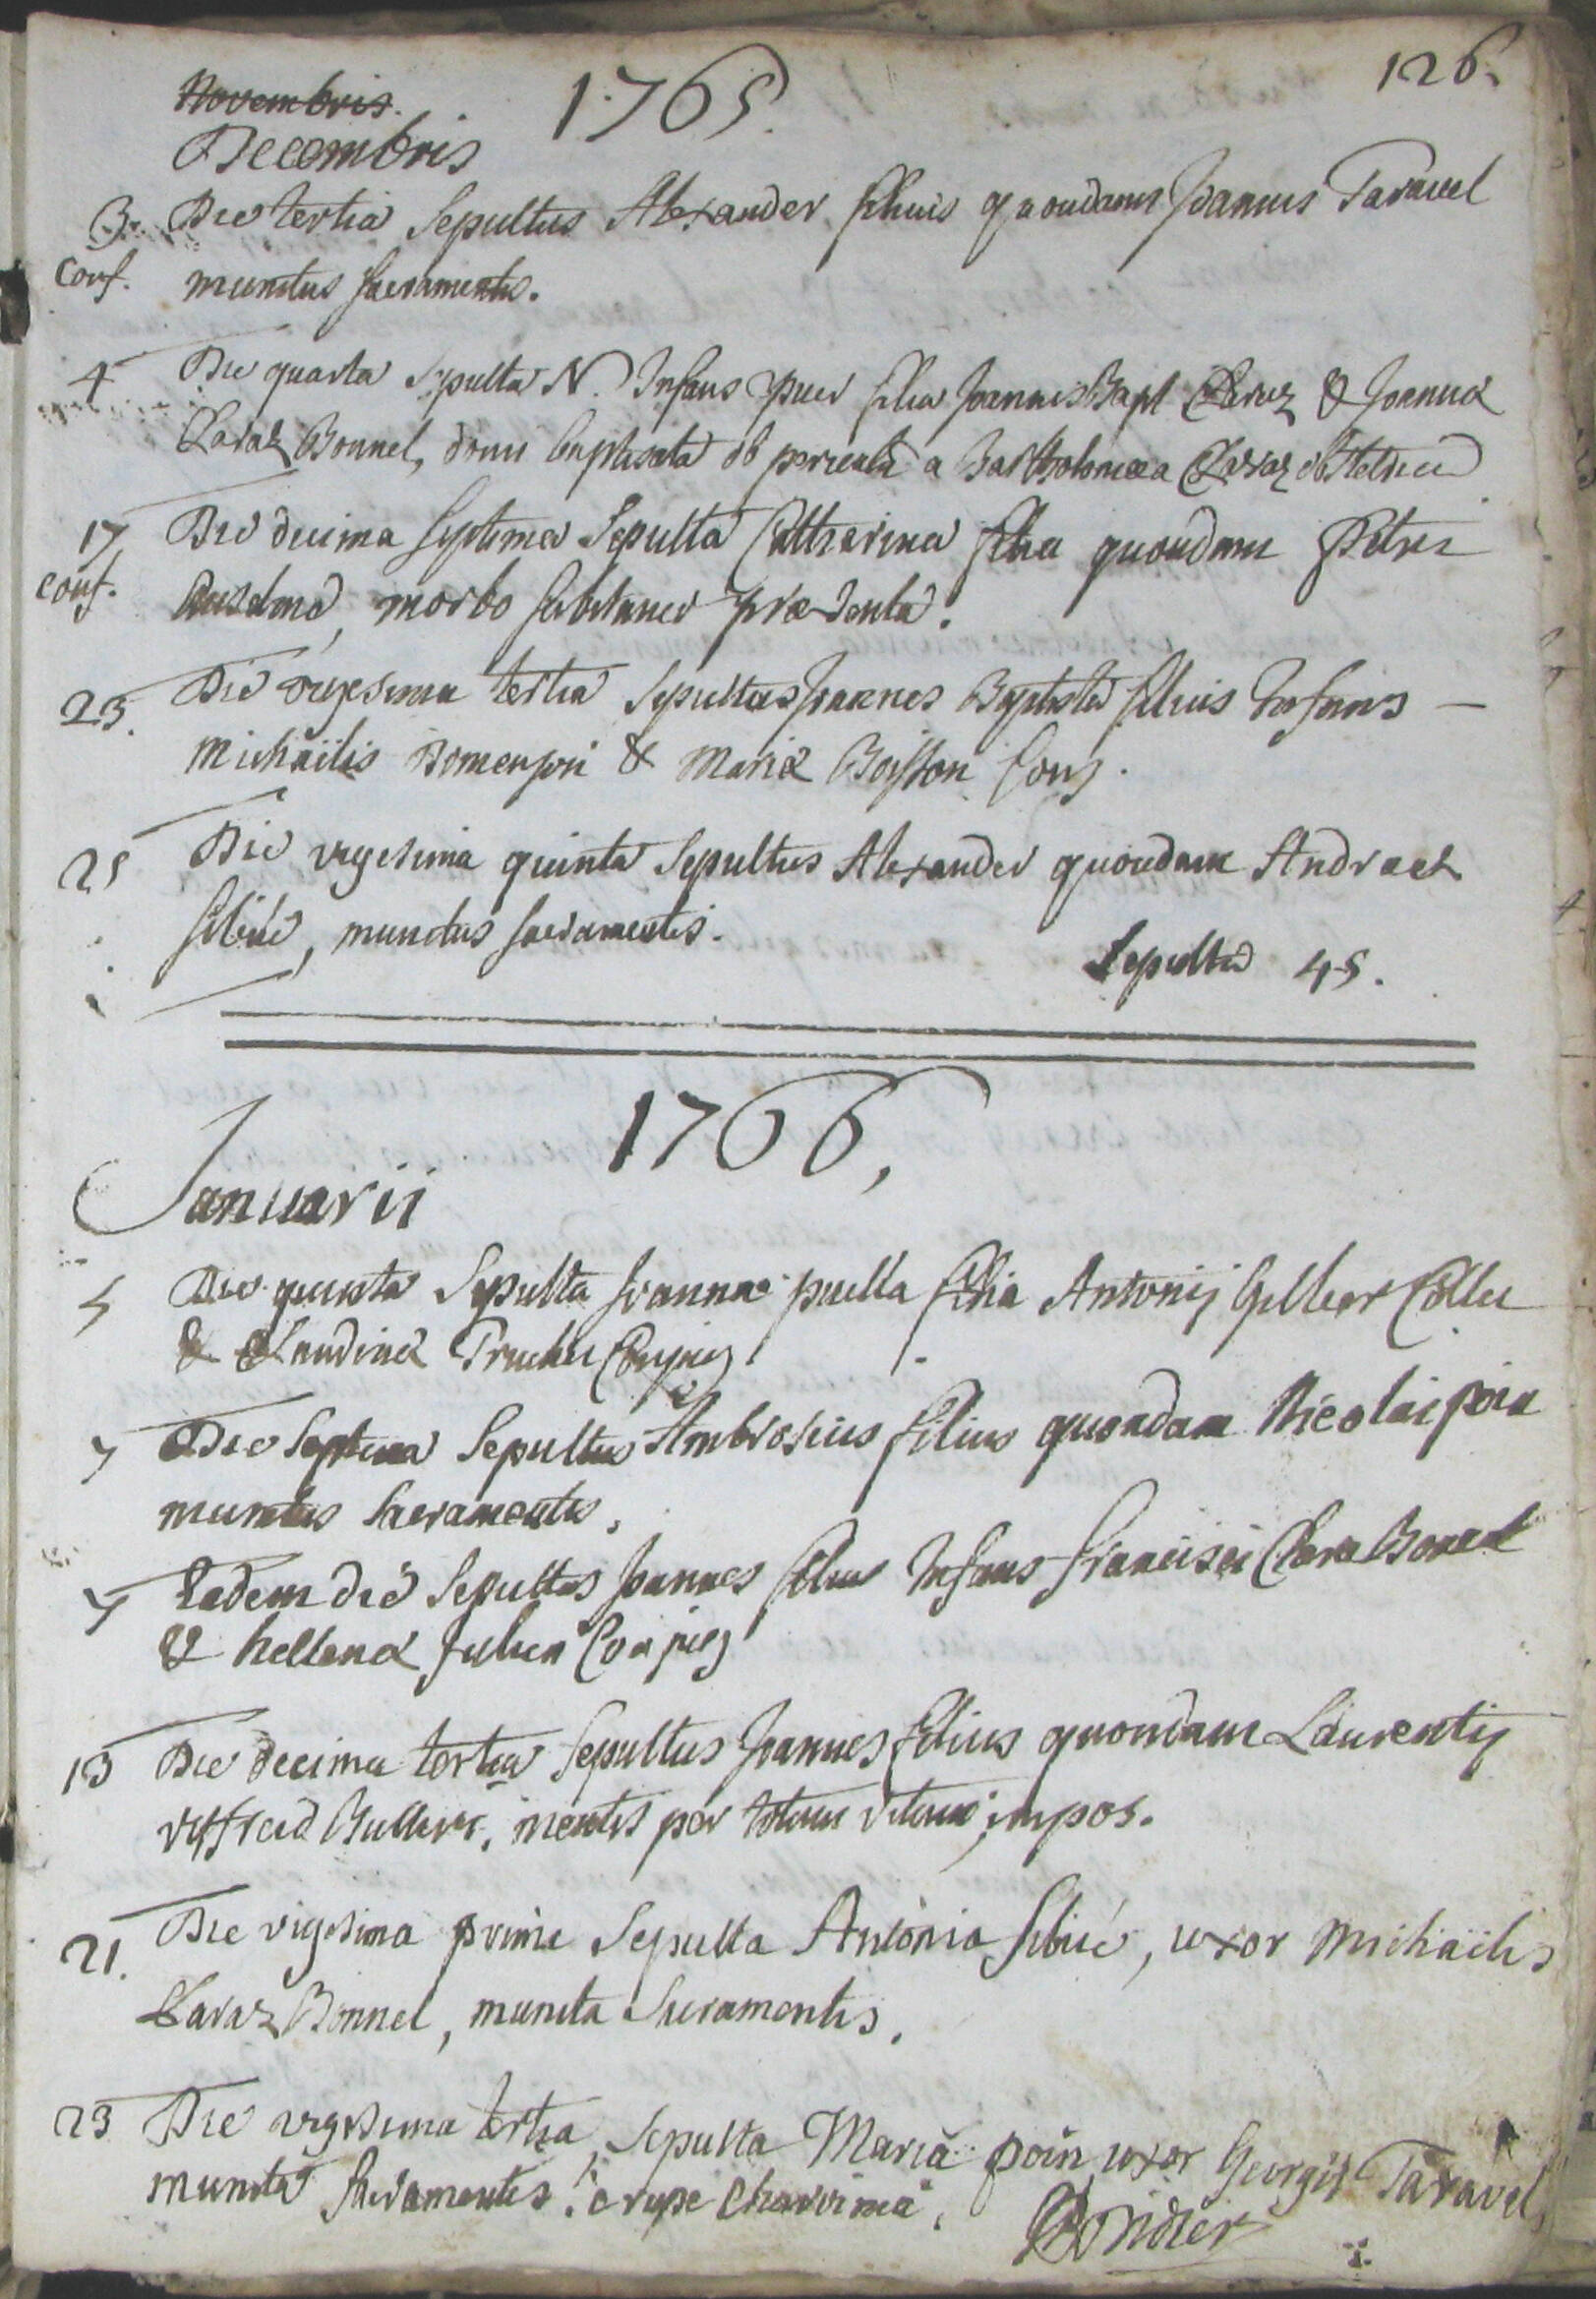 126.
1765.
Novembris.
Decembris
3. Die tertia Sepultus Alexander filius quondam Joannis Taravel
Conf. munitus sacramentis.
4 Die quarta Sepulta N. Infans puer filia Joannis Bapt Claraz & Joannæ
Claraz Bonnel, domi baptisata ob pericula a Bartholomæa Claraz obstetrice
17 Die decima septima Sepulta Catharina filia quondam Petri
conf. morbo subitaneo præventa.
23. Die vigesima tertia Sepultus Joannes Baptista filius Infans —
Michaëlis Domenjon & Mariæ Boisson Conj.
25 Die vigesima quinta Sepultus Alexander quondam Andreæ
Sibué, munitus sacramentis.
Sepulta 45.
1766,
Januarii
5 Die quinta Sepulta Joanna puella filia Antonij Gilbert Collet
& Claudinæ Truchet Conjug
7 Die Septima Sepultus Ambrosius filius quondam Nicolai poin
munitus Sacramentis.
7 Eadem die Sepultus Joannes filius Infans francisci Clara Bonel
& hellenæ Conjug
13 Die decima tertia Sepultus Joannes filius quondam Laurentij
mentis per totam vitam impos.
21. Die vigesima prima Sepulta Antonia Sibué, uxor Michaëlis
Claraz Bonnel, munita Sacramentis.
23 Die vigesima tertia, Sepulta Maria poin uxor Georgij Taravel,
munita Sacramentis. è rupe Charvinea.
Rondier